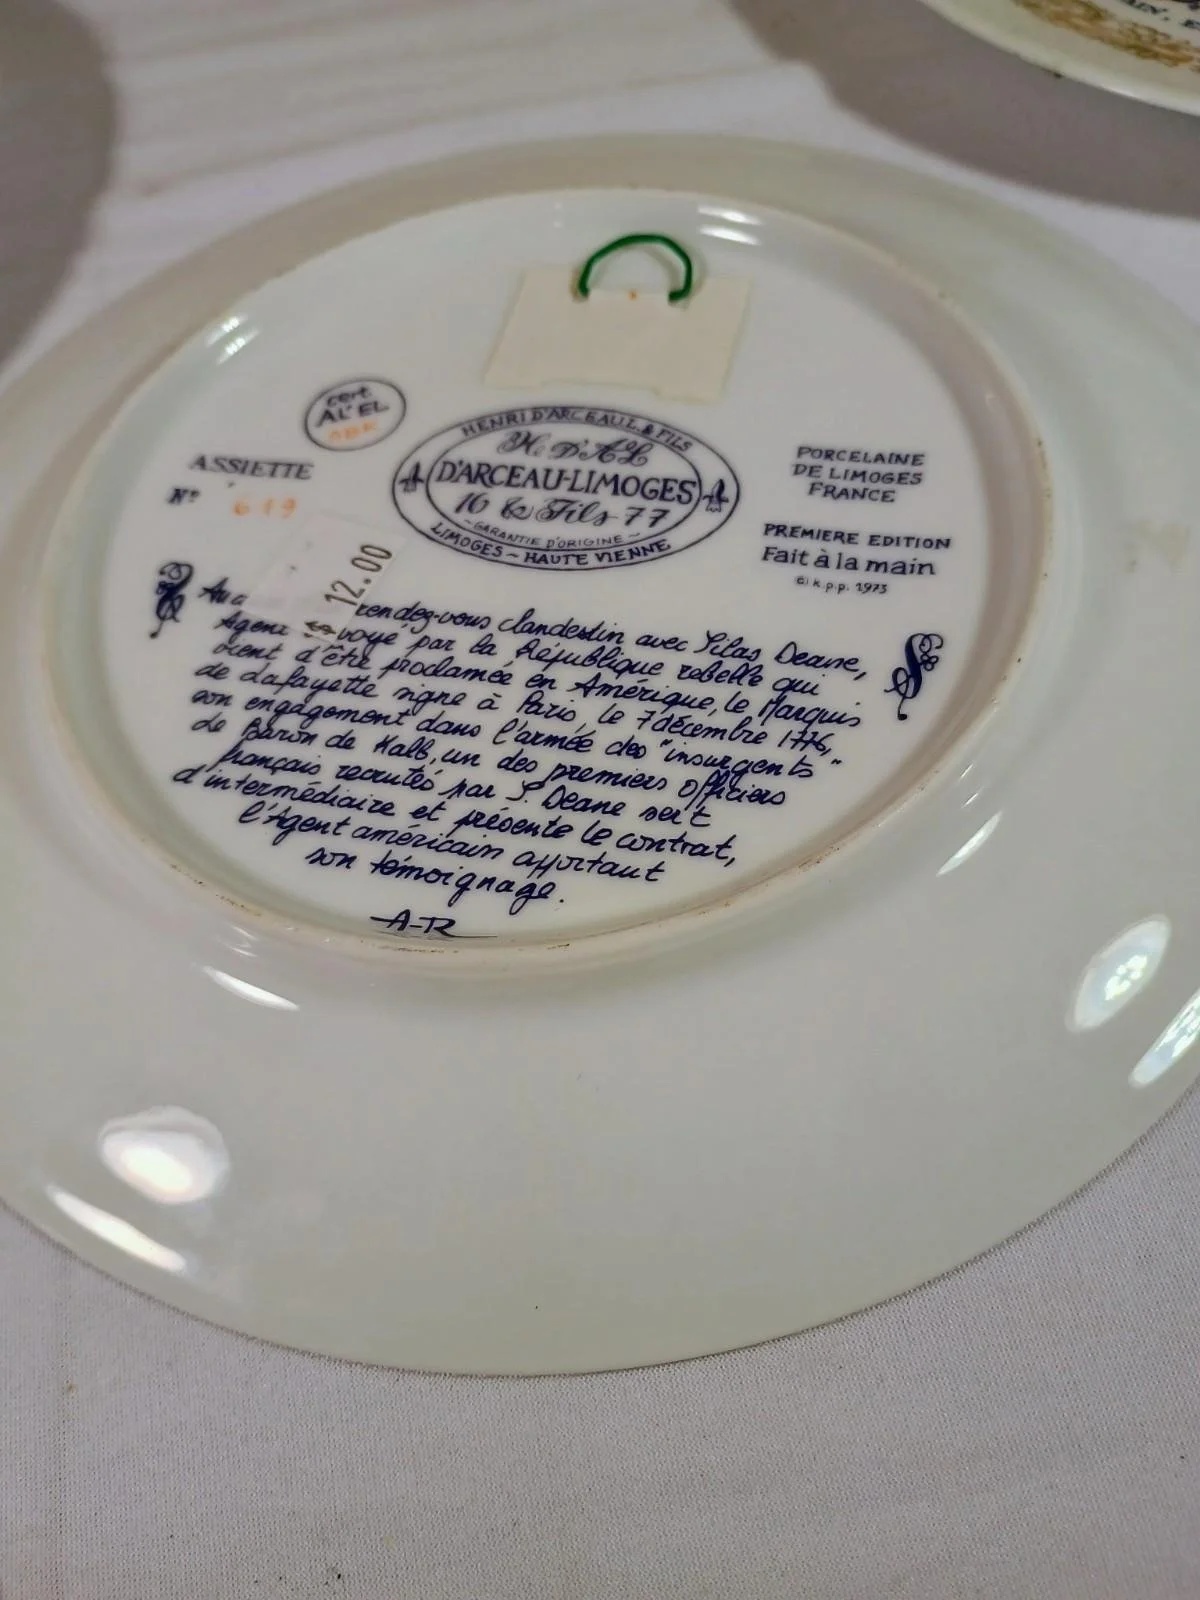 cert
AL' EL
HENRI D'ARCEAU L. & FILS
H. D'A L
D'ARCEAU-LIMOGES
16 & Fils 77
~GARANTIE D'ORIGINE~
LIMOGES ~ HAUTE VIENNE
ASSIETTE
Nº 619
PORCELAINE
DE LIMOGES
FRANCE
PREMIERE EDITION
Fait à la main
© k.p.p. 1973
12.00
rendez-vous clandestin avec Silas Deane,
Agent par la République rebelle qui
vient d'être proclamée en Amérique, le Marquis
de Lafayette signe à Paris, le 7 décembre 1776,
son engagement dans l'armée des "insurgents"
Le Baron de Kalb, un des premiers officiers
français recrutés par S. Deane sert
d'intermédiaire et présente le contrat,
l'Agent américain apportant
son témoignage.
A-R